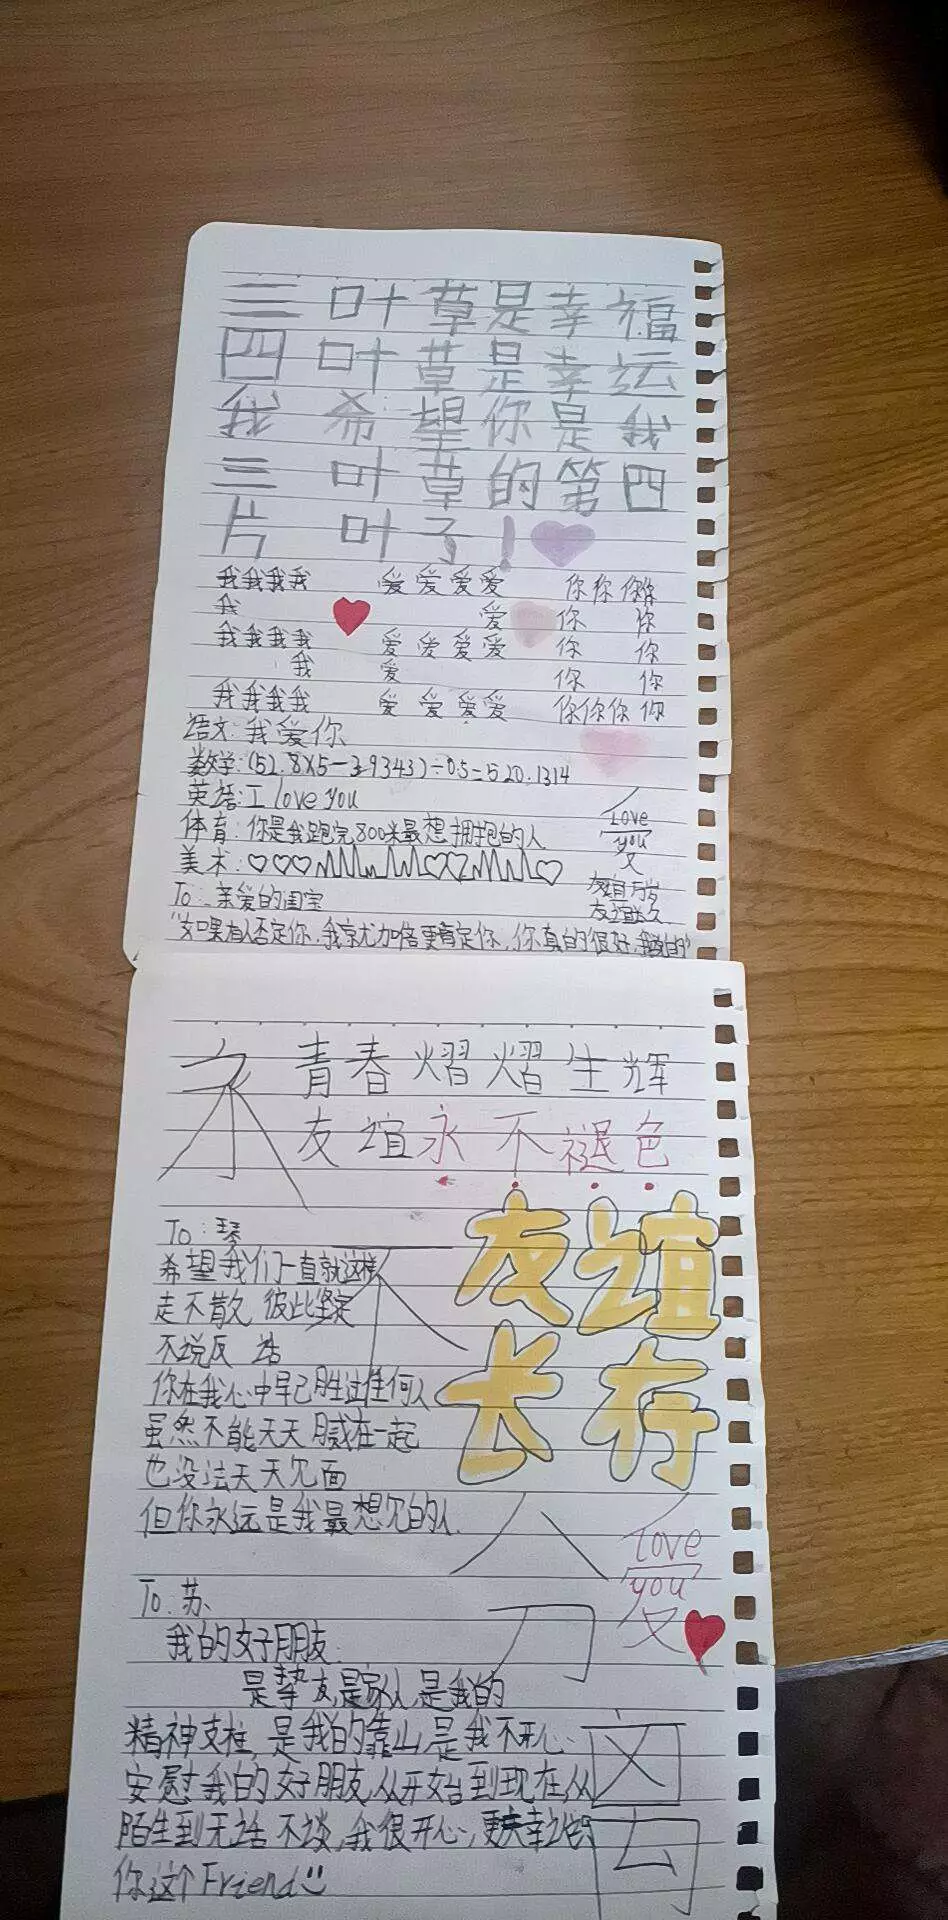 三叶草是幸福
四叶草是幸运
我希望你是我
三叶草的第四
片叶子!
我我我我 爱爱爱爱 你你你你
我 爱 你 你
我我我我 爱爱爱爱 你 你
我 爱 你 你
我我我我 爱爱爱爱 你你你你
语文:我爱你
数学:(52.8×5-3.9343)÷0.5=520.1314
英语:I love you
体育:你是我跑完800米最想拥抱的人
美术:
love
you
友谊万岁
友谊长久
To:亲爱的闺宝
"如果有人否定你,我就加倍更肯定你,你真的很好,
青春熠熠生辉
友谊永不褪色
友谊
长存
To:琴
希望我们一直就这样
走不散 彼此坚定
不说反话
你在我心中早已胜过任何人
虽然不能天天腻在一起
也没法天天见面
但你永远是我最想见的人.
love
you
To.苏
我的好朋友.
是挚友,是家人,是我的
精神支柱,是我的靠山,是我不开心
安慰我的好朋友,从开始到现在,从
陌生到无话不谈,我很开心,更庆幸
你这个Friend